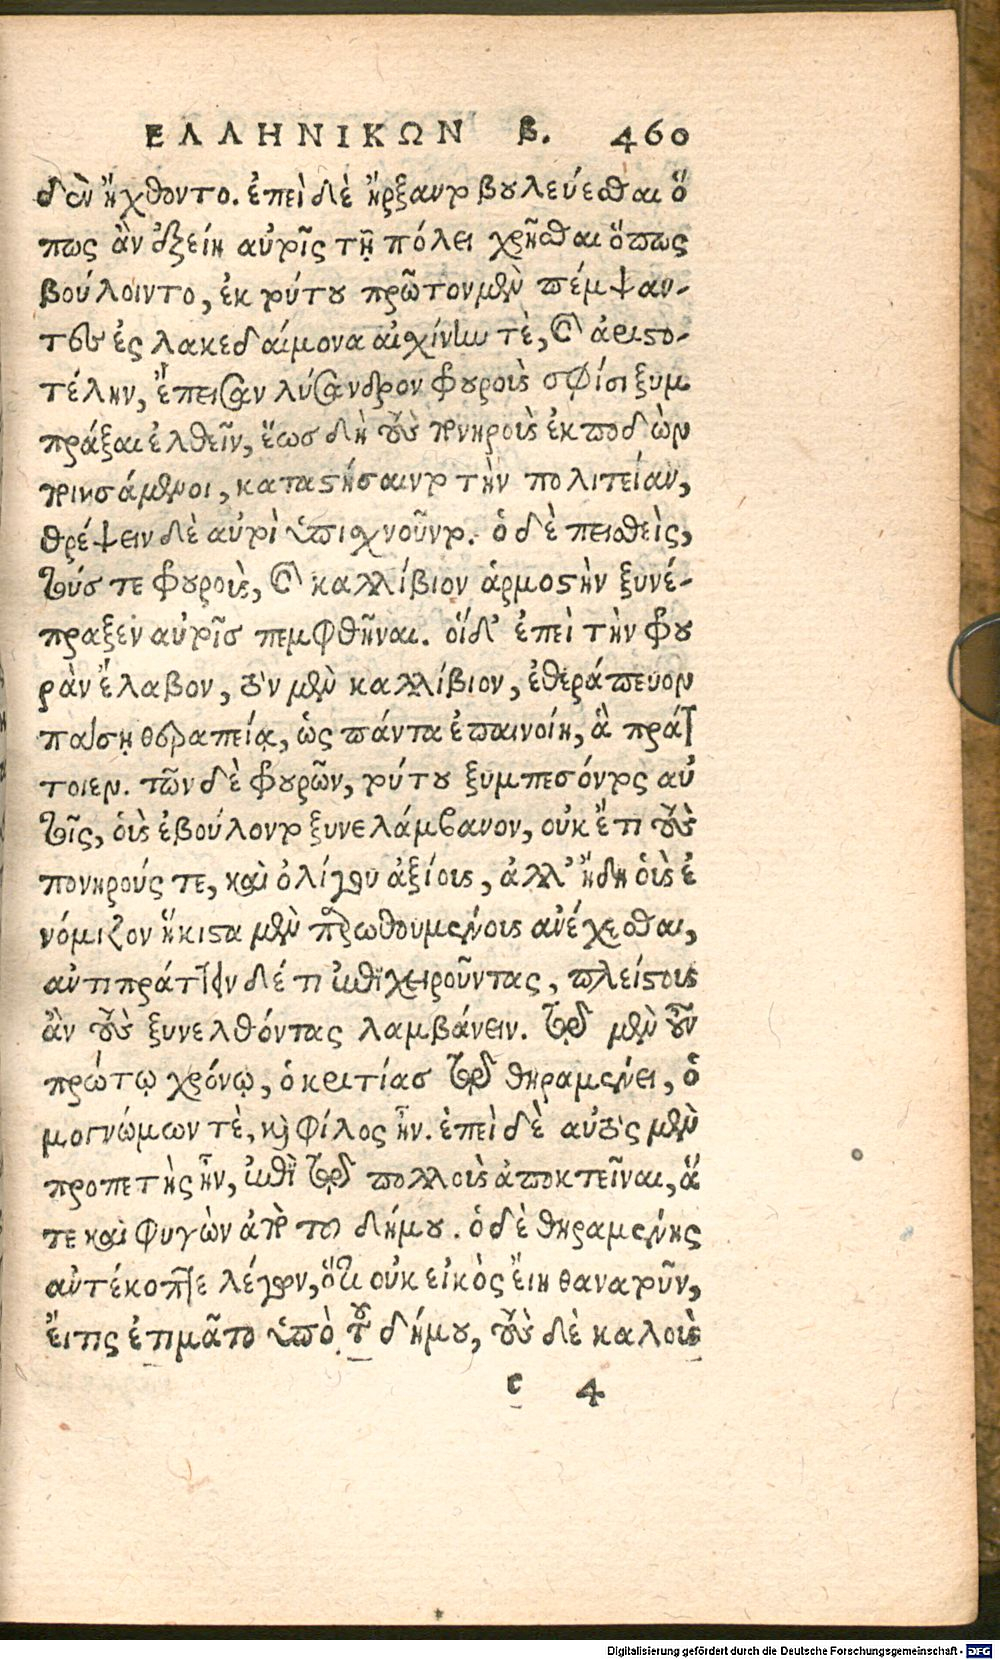 ΕΛΛΗΝΙΚΩΝ β. 460
δὲν ἤχθοντο. ἐπεὶ δὲ ἤρξαντο βουλεύεσθαι ὅ
πως ἂν ἐξείη αὐτοῖς τῇ πόλει χρῆσθαι ὅπως
βούλοιντο, ἐκ τούτου πρῶτον μὲν πέμψαν-
τες ἐς λακεδαίμονα αἰσχίνην τὲ, καὶ ἀριστο-
τέλην, ἔπεισαν λύσανδρον φρουροὺς σφίσι ξυμ
πράξαι ἐλθεῖν, ἕως δὴ τοὺς πονηροὺς ἐκποδὼν
ποιησάμενοι, καταστήσαιντο τὴν πολιτείαν,
θρέψειν δὲ αὐτοὶ ὑπισχνοῦντο. ὁ δὲ πεισθεὶς,
τούς τε φρουροὺς, καὶ καλλίβιον ἁρμοστὴν ξυνέ-
πραξεν αὐτοῖς πεμφθῆναι. οἵδ' ἐπεὶ τὴν φρου
ρὰν ἔλαβον, τὸν μὲν καλλίβιον, ἐθεράπευον
πάσῃ θεραπείᾳ, ὡς πάντα ἐπαινοίη, ἃ πράτ
τοιεν. τῶν δὲ φρουρῶν, τούτου ξυμπεσόντος αὐ
τοῖς, οὓς ἐβούλοντο ξυνελάμβανον, οὐκ ἔτι τοὺς
πονηρούς τε, καὶ ὀλίγου ἀξίους, ἀλλ' ἤδη οὓς ἐ
νόμιζον ἥκιστα μὲν παρωθουμένους ἀνέχεσθαι,
ἀντιπράττειν δέ τι ἐπιχειροῦντας, πλείστους
ἂν τοὺς ξυνελθόντας λαμβάνειν. τῷ μὲν οὖν
πρώτῳ χρόνῳ, ὁ κριτίας τῷ θηραμένει, ὁ
μογνώμων τὲ, καὶ φίλος ἦν. ἐπεὶ δὲ αὐτὸς μὲν
προπετὴς ἦν, ἐπὶ τῷ πολλοὺς ἀποκτεῖναι, ἅ
τε καὶ φυγὼν ἀπὸ τοῦ δήμου. ὁ δὲ θηραμένης
ἀντέκοπτε λέγων, ὅτι οὐκ εἰκὸς εἴη θανατοῦν,
εἴ τις ἐτιμᾶτο ὑπὸ τοῦ δήμου, τοὺς δὲ καλοὺς
c 4
Digitalisierung gefördert durch die Deutsche Forschungsgemeinschaft - DFG